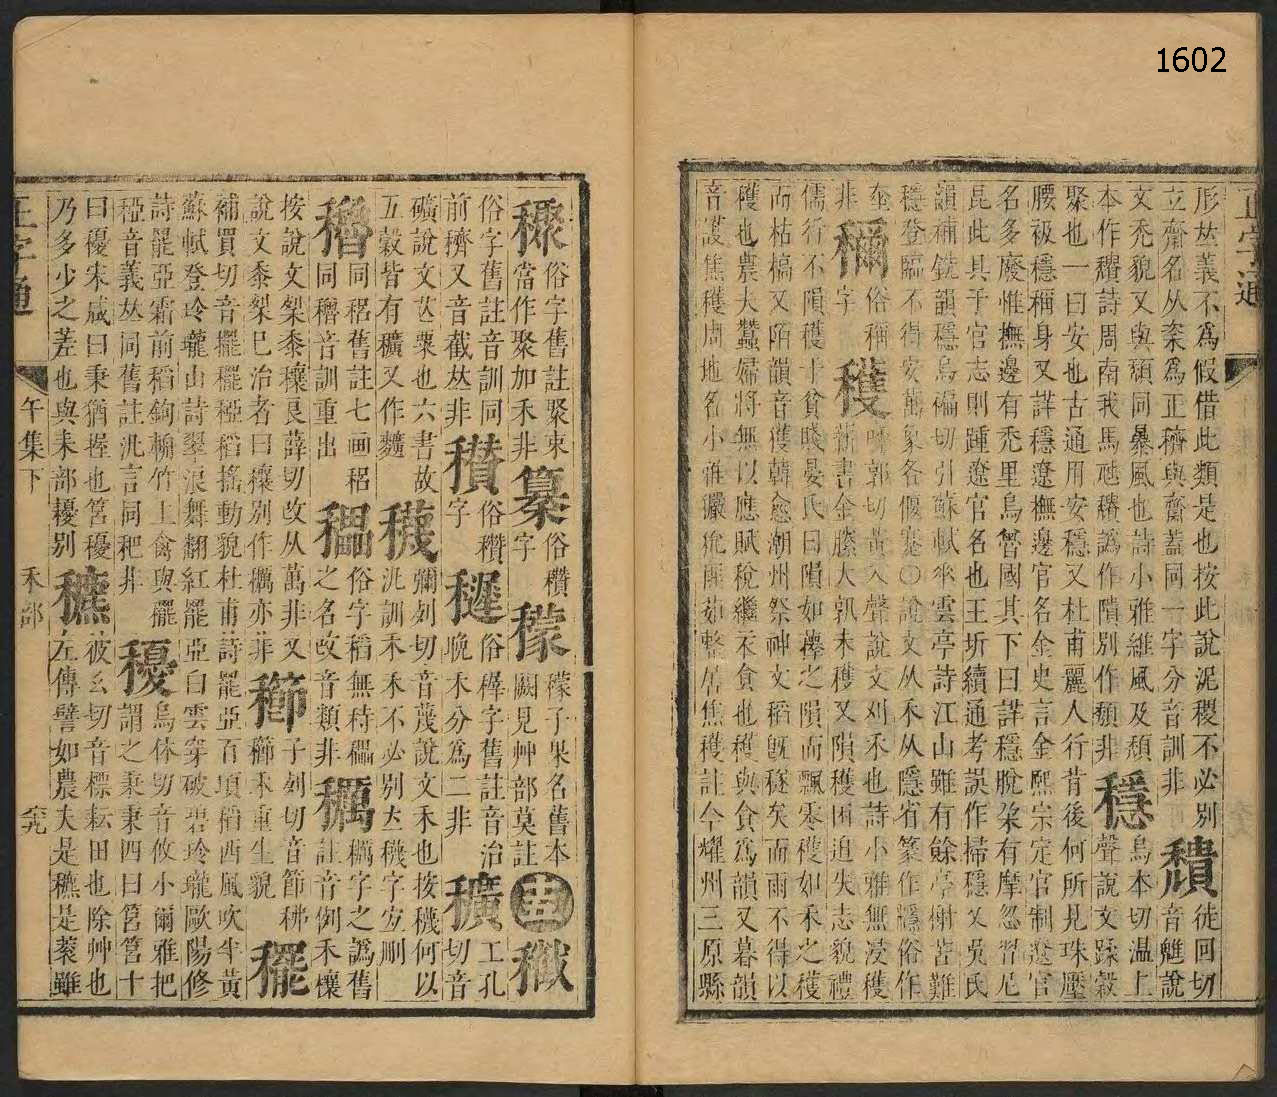 1602
正字通
形𠀤義不爲假借此類是也按此說泥稷不必別 穨 徒回切
立齋名从㮈爲正穧與齋蓋同一字分音訓非 音魋說
文禿貌又與頹同暴風也詩小雅維風及頹 穩 烏本切温上
本作穨詩周南我馬虺穨譌作隤別作頽非 聲說文蹂穀
聚也一曰安也古通用安穩又杜甫麗人行背後何所見珠壓
腰衱穩稱身又詳穩遼撫邊官名金史言金熙宗定官制遼官
名多廢惟撫邊有禿里烏魯國其下曰詳穩脫朶有摩忽習尼
昆此其于官志則踵遼官名也王圻續通考誤作掃穩又吳氏
韻補銑韻穩烏偏切引蘇軾 雲亭詩江山雖有餘亭榭苦難
穩登臨不得安萬象各偃蹇〇說文从禾从隱省篆作穩俗作
非 穪 俗稱字 穫 郭切黃入聲說文刈禾也詩小雅無浸穫
薪書金縢大孰未穫又隕穫困迫失志貌禮
儒行不隕穫于貧賤晏氏曰隕如蘀之隕而飄零穫如禾之穫
而枯槁又陌韻音獲韓愈潮州祭神文稻旣穟矣而雨不得以
穫也農夫蠶婦將無以應賦稅繼衣食也穫與食爲韻又暮韻
音護焦穫周地名小雅玁狁匪茹整居焦穫註今耀州三原縣
俗字舊註聚束 當作聚加禾非 纂 俗穳字 穬 穬子果名舊本闕見艸部莫註 十五 工孔
俗字舊註音訓同 前穧又音截𠀤非 穳 俗穳字 俗稺字舊註音治 晩禾分爲二非 穬 切音
礦說文芒粟也六書故 五穀皆有穬又作䵃 彌列切音蔑說文禾也按穖何以 訓禾禾不必別立穖字宜刪
穭 同稆舊註七画稆 同穞音訓重出 俗字稻無秙 之名改音類非 穲字之譌舊 註音例禾欀
按說文梨黍穰良薛切改从萬非又 子列切音節 說文黍梨已治者曰穰別作䅀亦非 櫛禾重生貌 䆉
補買切音擺䆉稏稻搖動貌杜甫詩罷亞百頃稻西風吹半黃
蘇軾登玲瓏山詩翠浪舞翻紅罷亞白雲穿破碧玲瓏歐陽修
詩罷亞霜前稻鉤輈竹上禽與擺 烏休切音攸小爾雅把
稏音義𠀤同舊註汎言同䎱非 謂之秉秉四曰筥筥十
曰穮宋咸曰秉猶握也筥 彼幺切音標耘田也除艸也
乃多少之差也與耒部耰別 穮 左傳譬如農夫是穮是蓘雖
正字通
午集下
禾部